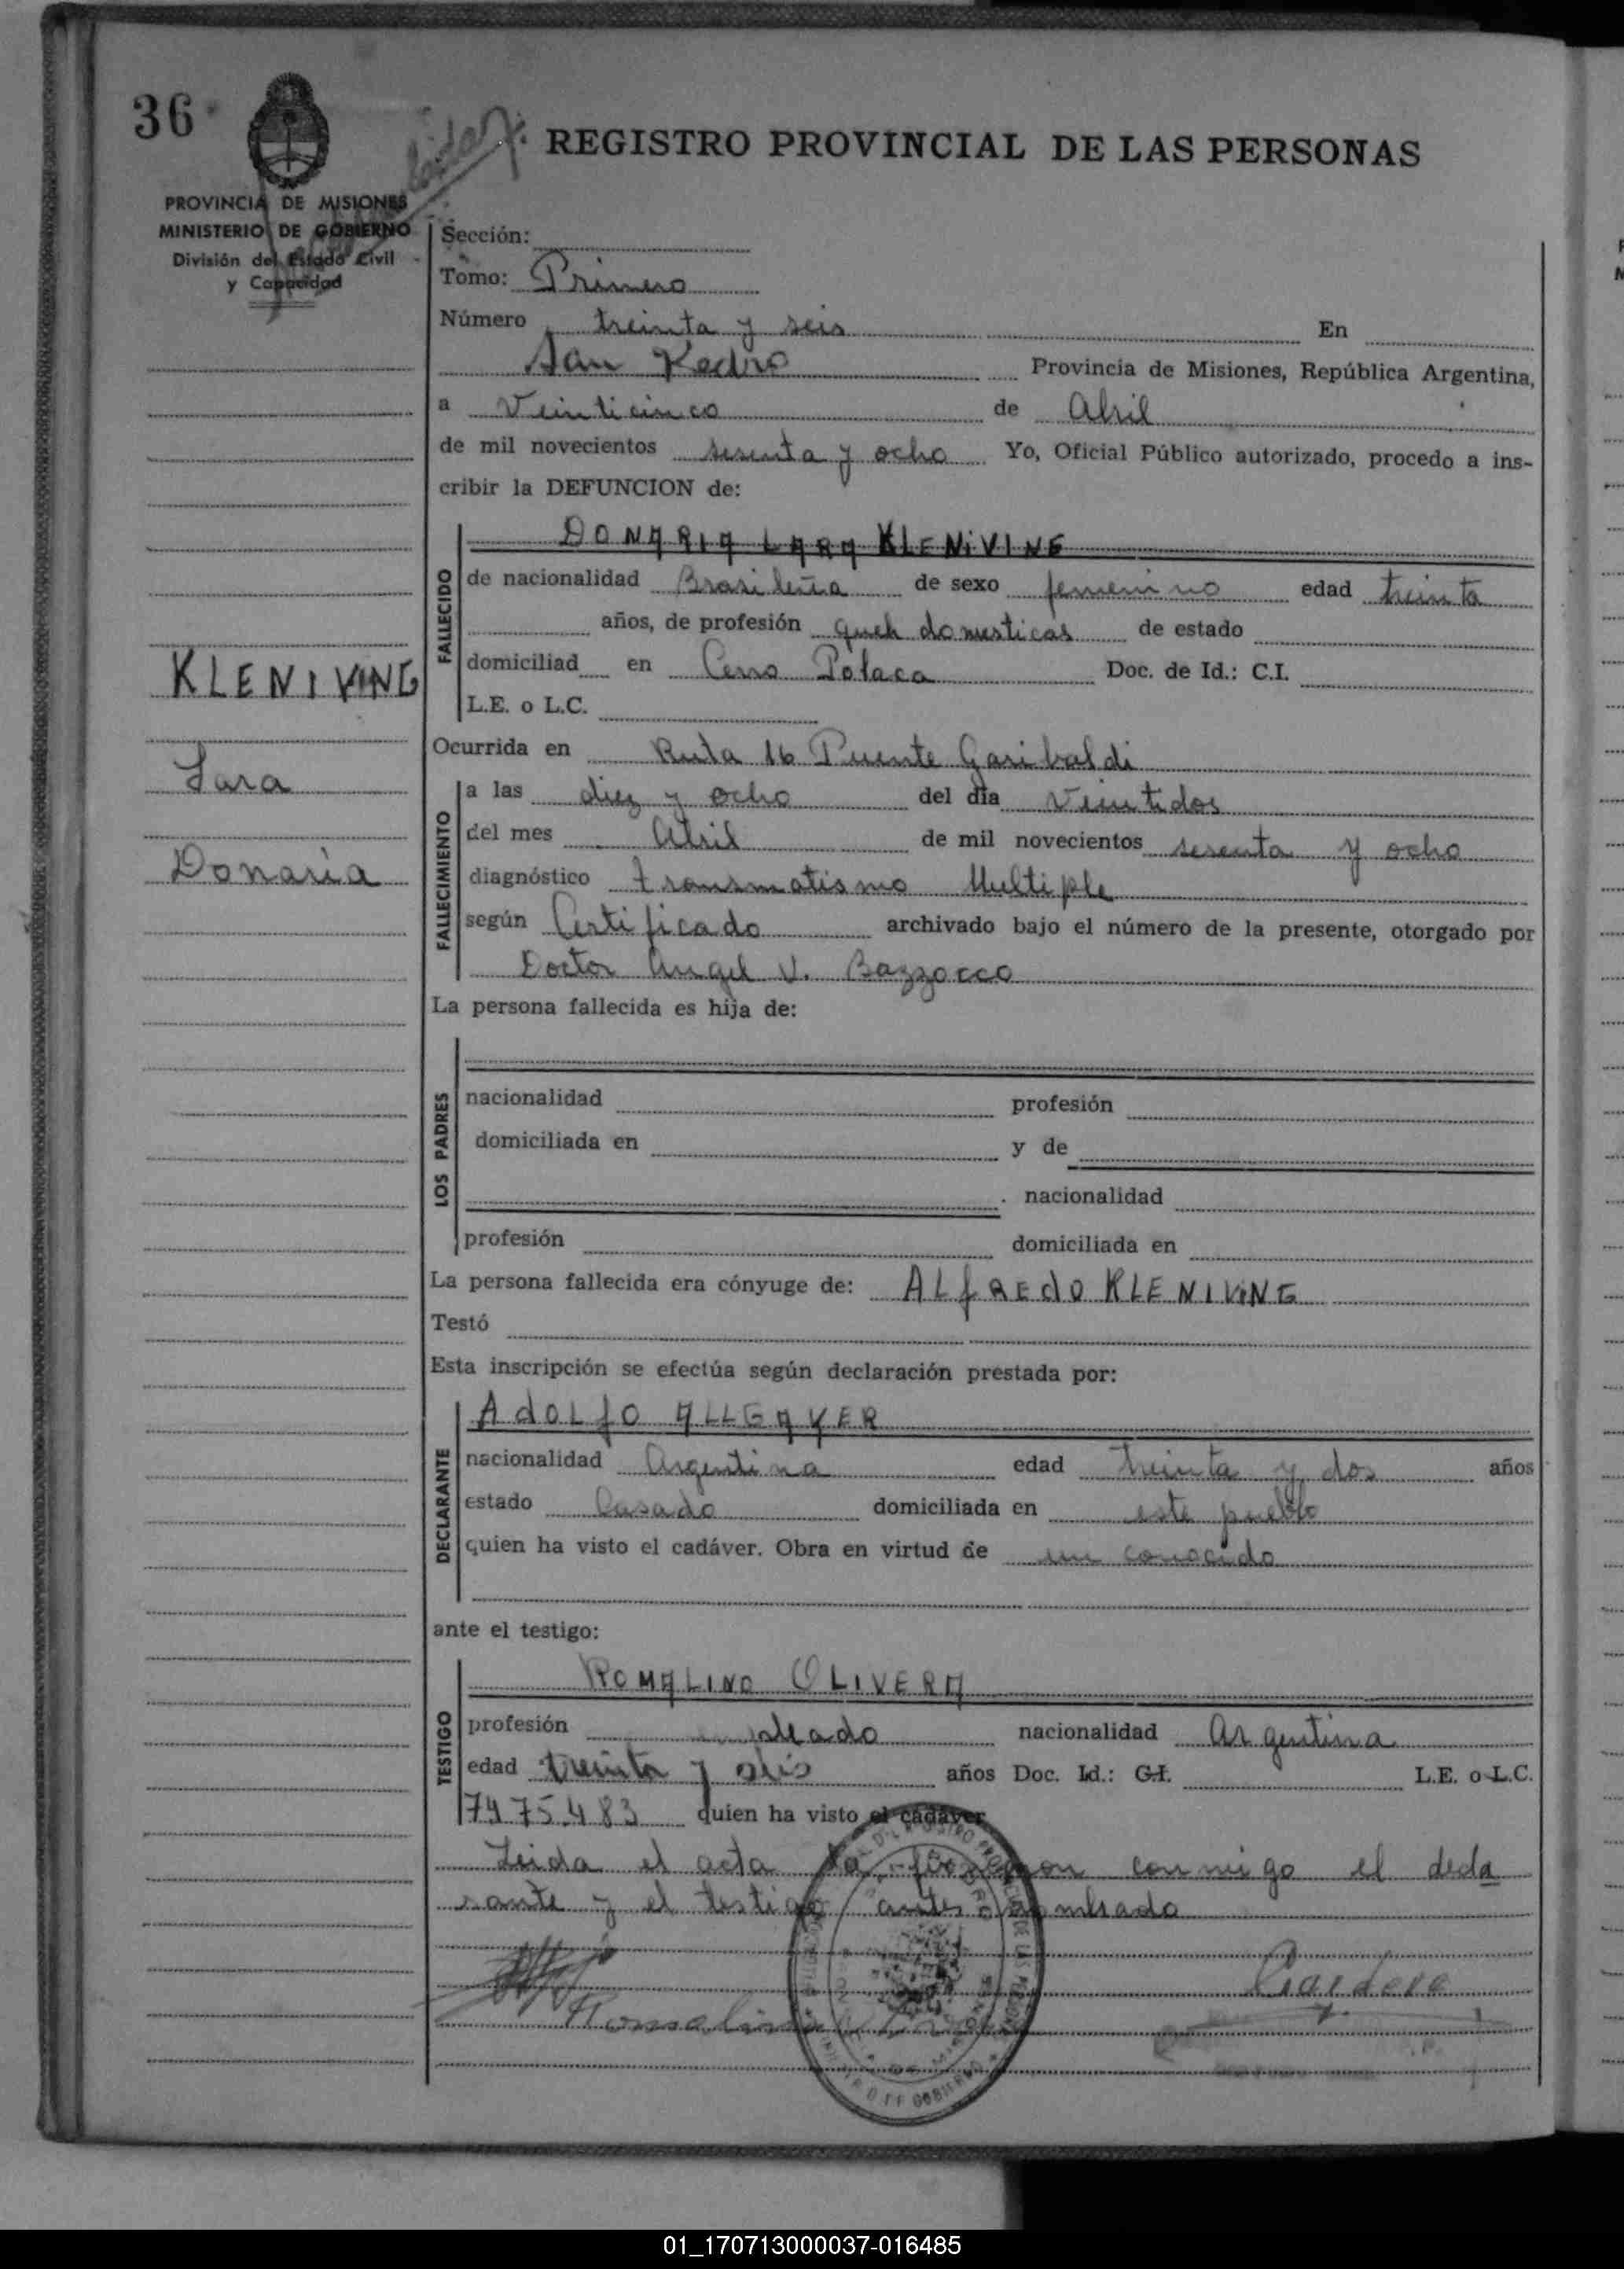 36
REGISTRO PROVINCIAL DE LAS PERSONAS
PROVINCIA DE MISIONES
MINISTERIO DE GOBIERNO
División del Estado Civil
y Capacidad
Sección:
Tomo: Primero
Número treinta y seis En
San Pedro Provincia de Misiones, República Argentina,
a Veinticinco de Abril
de mil novecientos sesenta y ocho Yo, Oficial Público autorizado, procedo a ins-
cribir la DEFUNCION de:
FALLECIDO
DONARIA LARA KLENIVING
de nacionalidad Brasileña de sexo femenino edad treinta
años, de profesión queh domesticas de estado
domiciliad en Cerro Polaca Doc. de Id.: C.I.
L.E. o L.C.
KLENIVING
Lara
Donaria
Ocurrida en Ruta 16 Puente Garibaldi
FALLECIMIENTO
a las diez y ocho del día Veintidos
del mes Abril de mil novecientos sesenta y ocho
diagnóstico transmatismo Multiple
según Certificado archivado bajo el número de la presente, otorgado por
Doctor Angel V. Bazzocco
La persona fallecida es hija de:
LOS PADRES
nacionalidad profesión
domiciliada en y de
nacionalidad
profesión domiciliada en
La persona fallecida era cónyuge de: ALfREdO KLENIVING
Testó
Esta inscripción se efectúa según declaración prestada por:
DECLARANTE
AdOLfO ALLGAYER
nacionalidad Argentina edad treinta y dos años
estado Casado domiciliada en este pueblo
quien ha visto el cadáver. Obra en virtud de un conocido
ante el testigo:
TESTIGO
ROMALINO OLIVERA
profesión nacionalidad Argentina
edad treinta y seis años Doc. Id.: C.I. L.E. o L.C.
7475.483 quien ha visto el cadáver
Leida el acta la conmigo el decla
rante y el testigo antes nombrado
Romalino
01_170713000037-016485